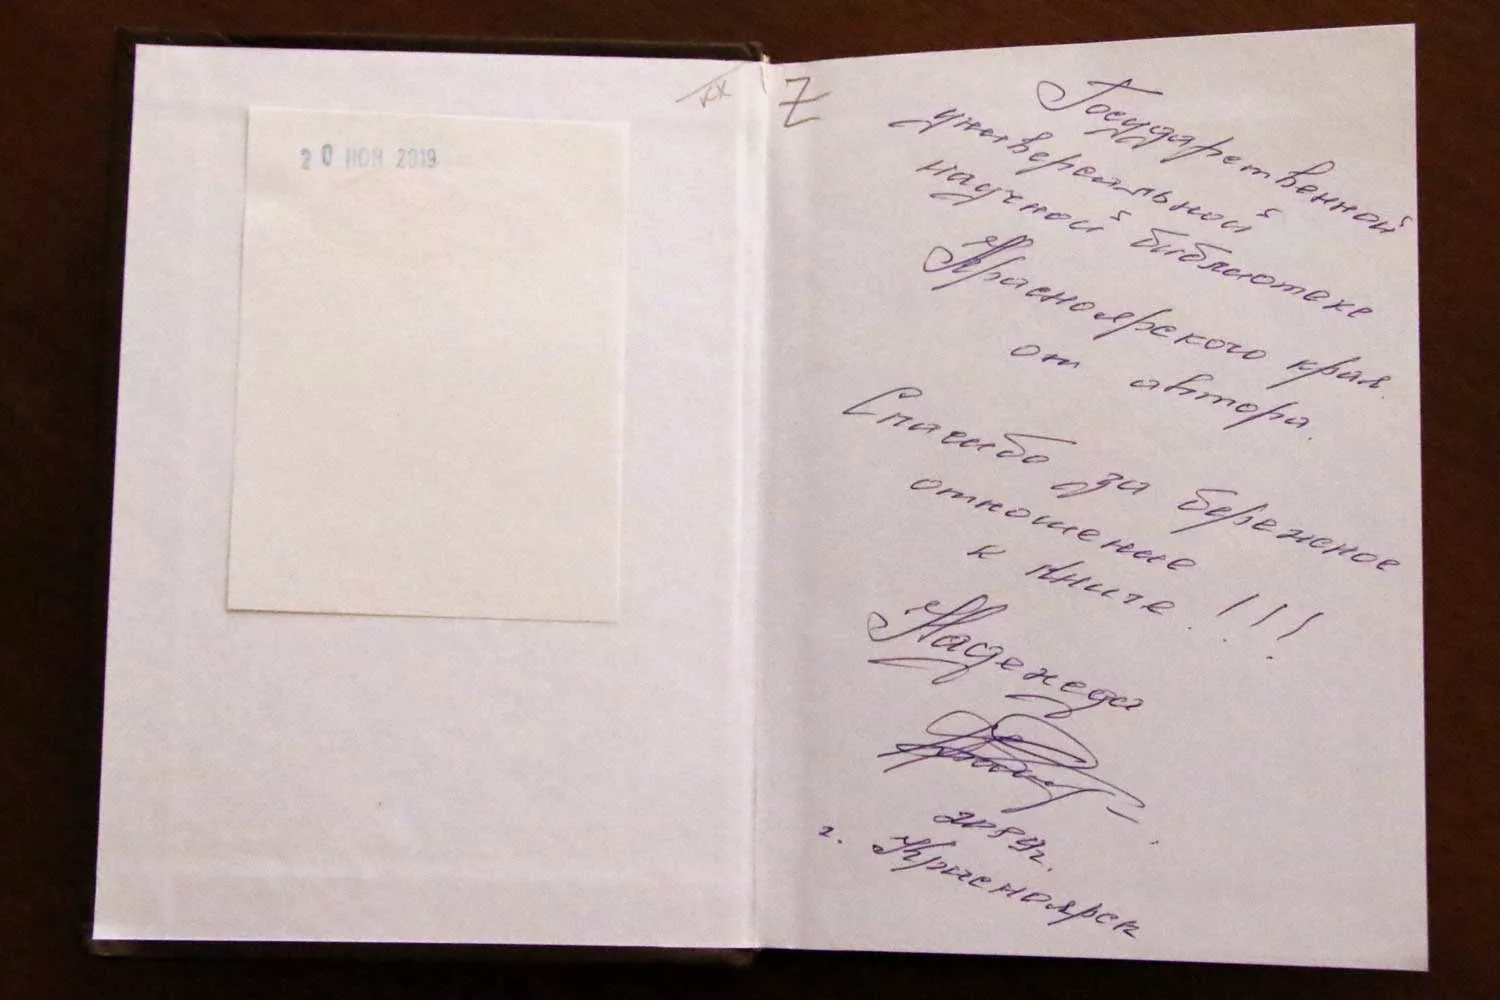 20 НОЯ 2019
Государственной
универсальной
научной библиотеке
Красноярского края
от автора.
Спасибо за бережное
отношение
к книге!!!
Надежда
г. Красноярск